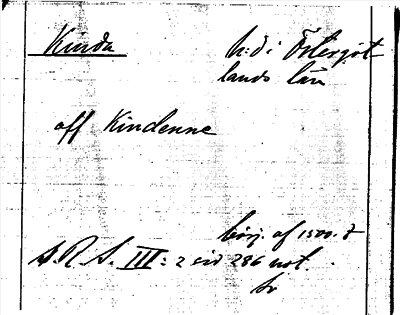 Kinda
h:d i Östergöt
lands län
aff Kindenne
börj. af 1500. t
S. R. S. III: 2 sid 286 not.